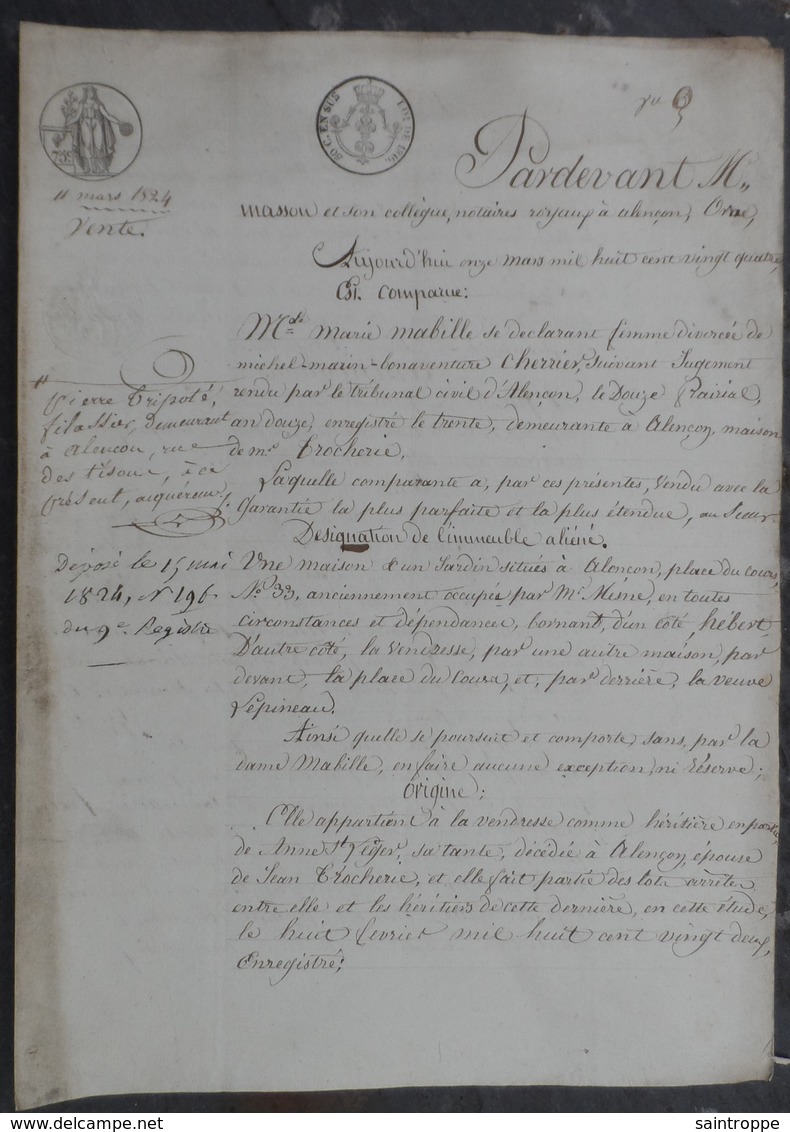 80 C. EN SUS
LOI DE 1816
75c
11 mars 1824
Vente.
Pardevant Me.
masson et son collègue, notaires royaux à alençon, Orne,
Aujourd'hui onze mars mil huit cent vingt quatre,
Est comparue:
Mde. marie mabille se declarant femme divorcée de
michel-marin-bonaventure Cherrier, suivant Jugement
rendu par le tribunal civil d'Alençon, le Douze Prairial,
an douze, enregistré le trente, demeurante à Alençon, maison
de mr. Trocherie,
Laquelle comparante a, par ces présentes, vendu avec la
Garantie la plus parfaite et la plus étendue, au Sieur
pierre Tripoté,
filassier, Demeurant
à alencon, rue
des tisons, à ce
présent, acquéreur.
Designation de l'immeuble aliéné.
Déposé le 15 mai
1824, N° 196
du 9e. Registre
Une maison & un Jardin situés à Alençon, place du Cours,
No. 33, anciennement occupés par Mr. Mesne, en toutes
circonstances et dépendances, bornant, d'un coté, hébert,
D'autre côté, la Vendresse, par une autre maison, par
devant, la place du Cours, et, par derrière, la veuve
Lépineau.
Ainsi qu'elle se poursuit et comporte, sans, par la
dame Mabille, en faire aucune exception, ni réserve;
Origine;
Elle appartient à la vendresse comme héritière en partie
de Anne St. Leger, sa tante, décédée à Alençon, épouse
de Jean Trocherie, et elle fait partie des lots arrêtés
entre elle et les héritiers de cette dernière, en cette étude,
le huit fevrier mil huit cent vingt deux,
Enregistré;
saintroppe